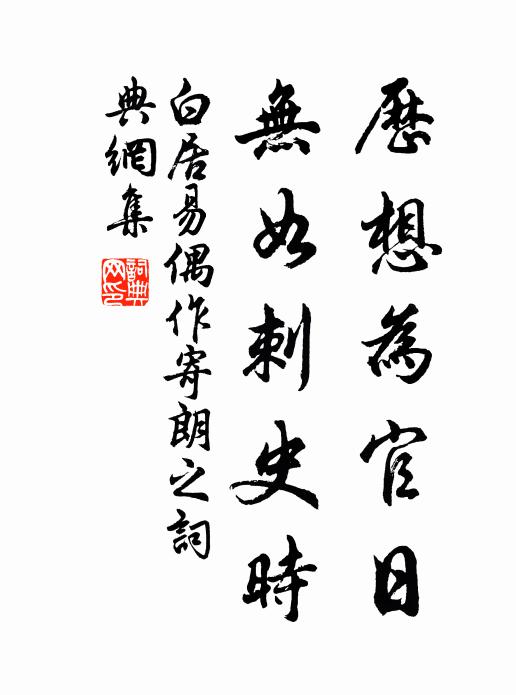 歷想為官日
無如刺史時
白居易偶作寄朗之詞
典網集
詞典網印